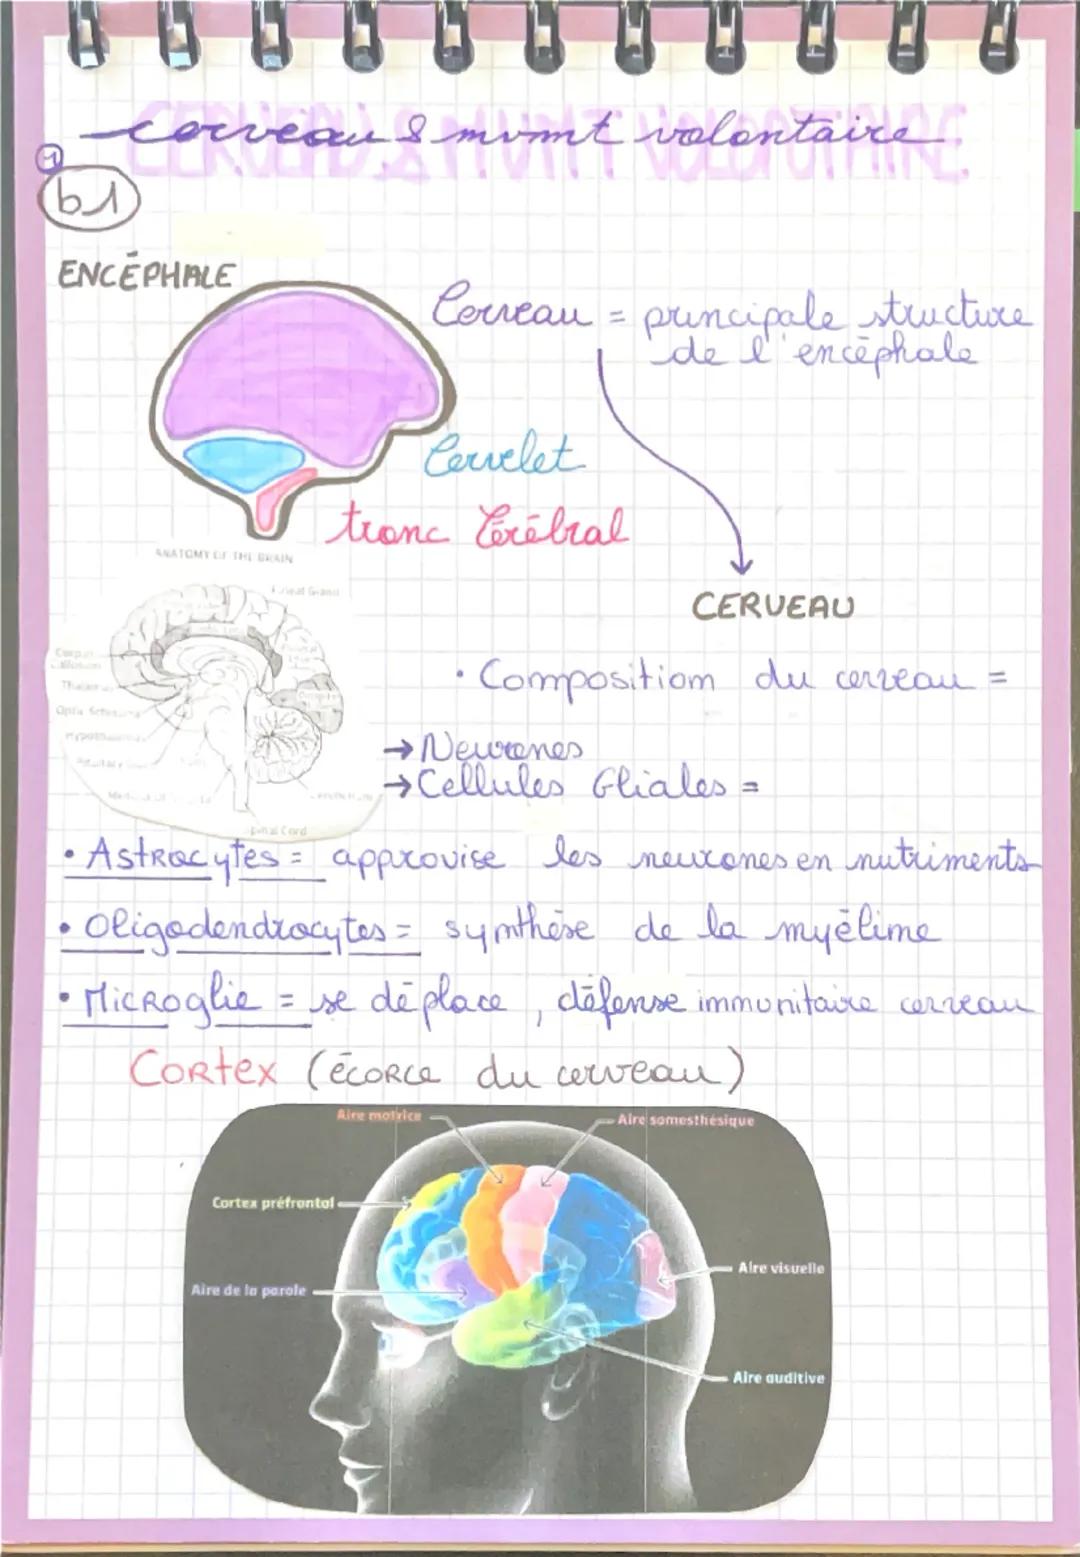 CERVEAU & MVMT VOLONTAIRE
cerveau & mvmt volontaire
1
b1
ENCÉPHALE
Cerveau = principale structure
de l'encéphale
Cervelet
tronc Cérébral
ANATOMY OF THE BRAIN
CERVEAU
Pineal Gland
Corpus
Callosum
Thalamus
Optic
Hypothalamus
Pituitary
Spinal Cord
• Composition du cerveau =
→ Neurones
→ Cellules Gliales =
• Astrocytes = approvise les neurones en nutriments
• Oligodendrocytes = synthèse de la myéline
• Microglie = se déplace, défense immunitaire cerveau
Cortex (écorce du cerveau)
Aire motrice
Aire somesthésique
Cortex préfrontal
Aire visuelle
Aire de la parole
Aire auditive